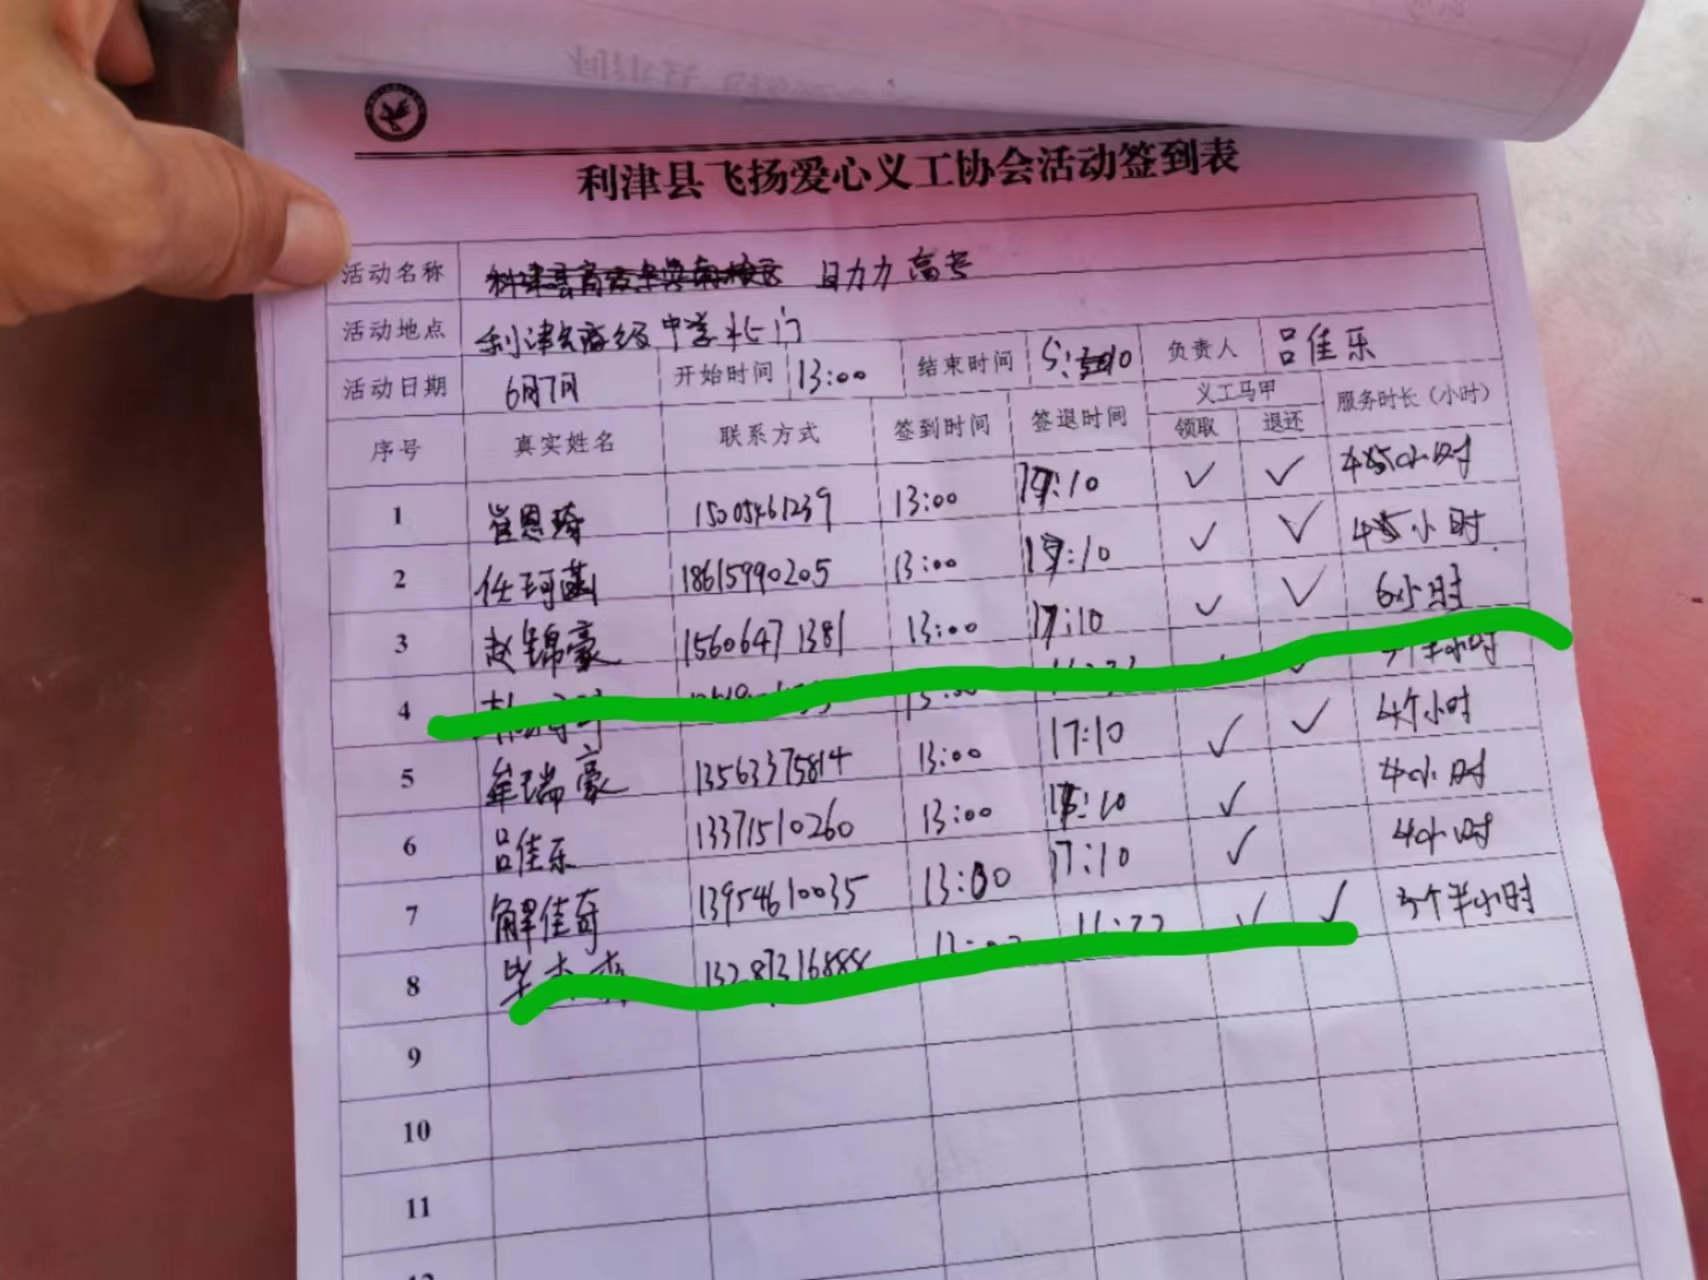 利津县飞扬爱心义工协会活动签到表
活动名称 助力高考
活动地点 利津县高级中学北门
活动日期 6月7日 开始时间 13:00 结束时间 负责人 吕佳乐
序号 真实姓名 联系方式 签到时间 签退时间 义工马甲 服务时长（小时）
领取 退还
1 崔恩琦 15005461239 13:00 17:10 ✓ ✓ 小时
2 任珂菡 18615990205 13:00 17:10 ✓ ✓ 小时
3 赵锦豪 15606471381 13:00 17:10 ✓ ✓ 6小时
4
5 牟瑞豪 13563375814 13:00 17:10 ✓ ✓ 4个小时
6 吕佳乐 13371510260 13:00 17:10 ✓ 4小时
7 解佳奇 13954610035 13:00 17:10 ✓ 4小时
8 13287316888 ✓ ✓ 3个半小时
9
10
11
12